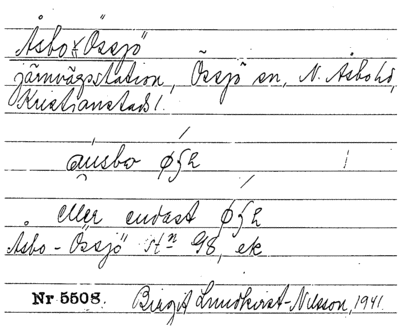 Åsbo-Össjö
järnvägsstation, Össjö sn, N. Åsbo hd,
Kristianstads l.
ǻusbω øʃǝ
eller endast øʃǝ
Åsbo-Össjö stn GS, ek
Nr 5508. Birgit Lundkvist-Nilsson, 1941.